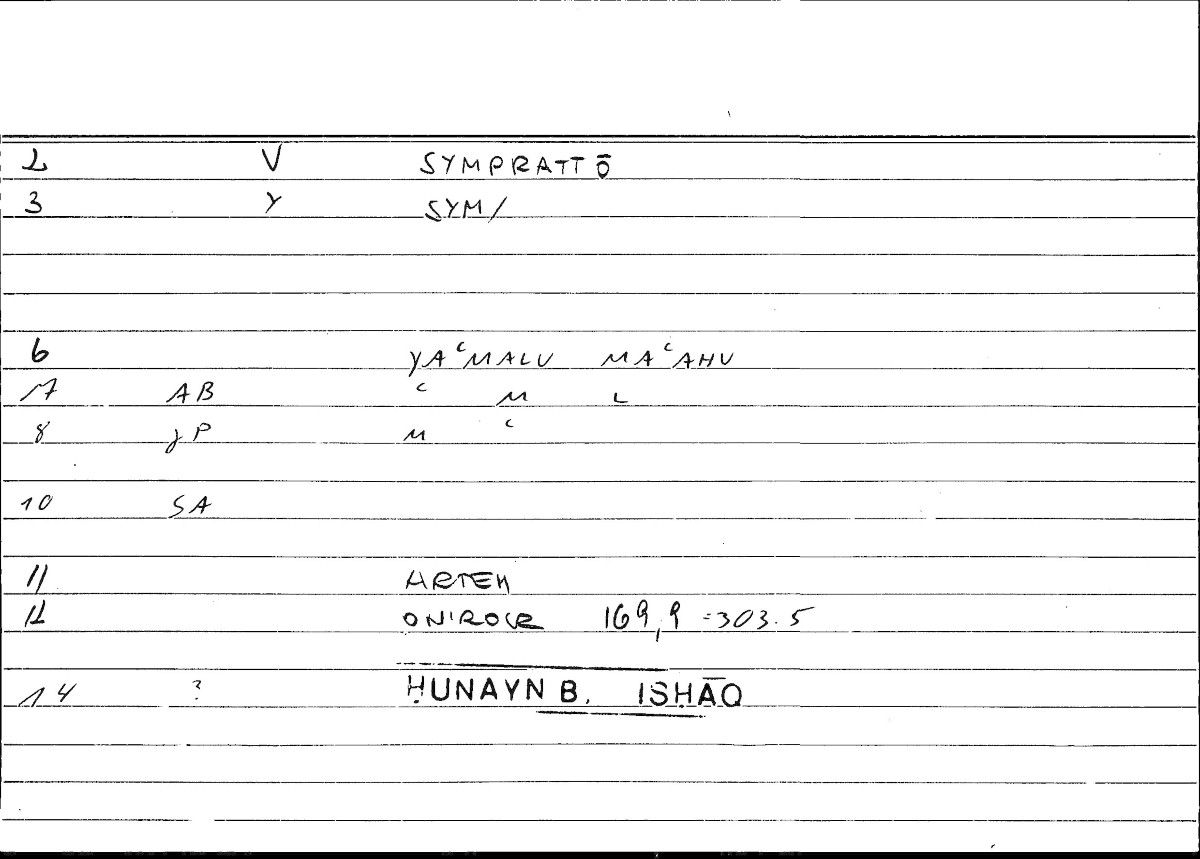 2 V SYMPRATTŌ
3 Y SYM/
6 YAʿMALU MAʿAHU
7 AB ʿ M L
8 JP M ʿ
10 SA
11 ARTEM
12 ONIROCR 169,9 = 303.5
14 ? ḤUNAYN B. ISḤĀQ